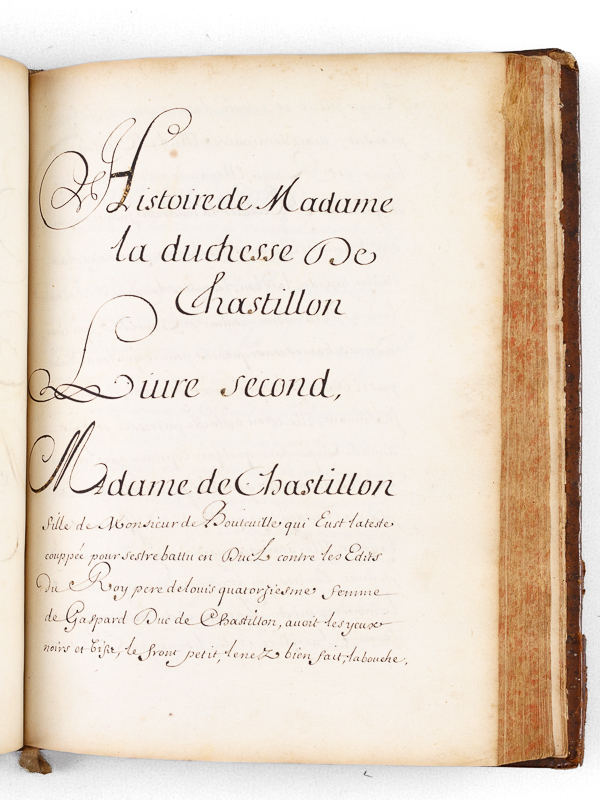 Histoire de Madame
la duchesse De
Chastillon
Liure second,
Madame de Chastillon
fille de Monsieur de Bouteuille qui Eust lateste
couppée pour sestre battu en DueL contre les Edits
du Roy pere de louis quatorziesme femme
de Gaspard Duc de Chastillon, auoit les yeux
noirs et vifs, le front petit, le nez bien fait, la bouche,